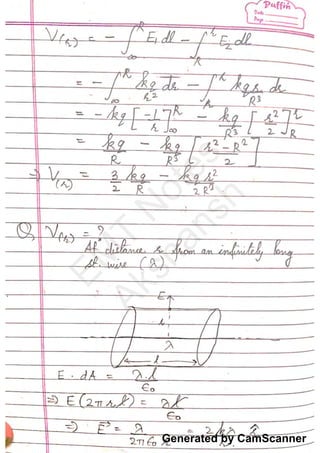 Puffin
Date
Page
V(r) = - ∫_∞^R E₁ dl - ∫_R^r E₂ dl
= - ∫_∞^R kq/r² dr - ∫_R^r kqr/R³ dr
= - kq [-1/r]_∞^R - kq/R³ [r²/2]_R^r
= kq/R - kq/R³ [(r² - R²)/2]
⇒ V(r) = 3/2 kq/R - kqr²/2R³
Q, V(r) = ?
At distance r from an infinitely long
st. wire (λ)
E↑
r
λ
l
E . dA = λ.l/ε₀
⇒ E (2πrl) = λl/ε₀
⇒ E = λ/2πε₀r = 2kλ/r r̂
Generated by CamScanner